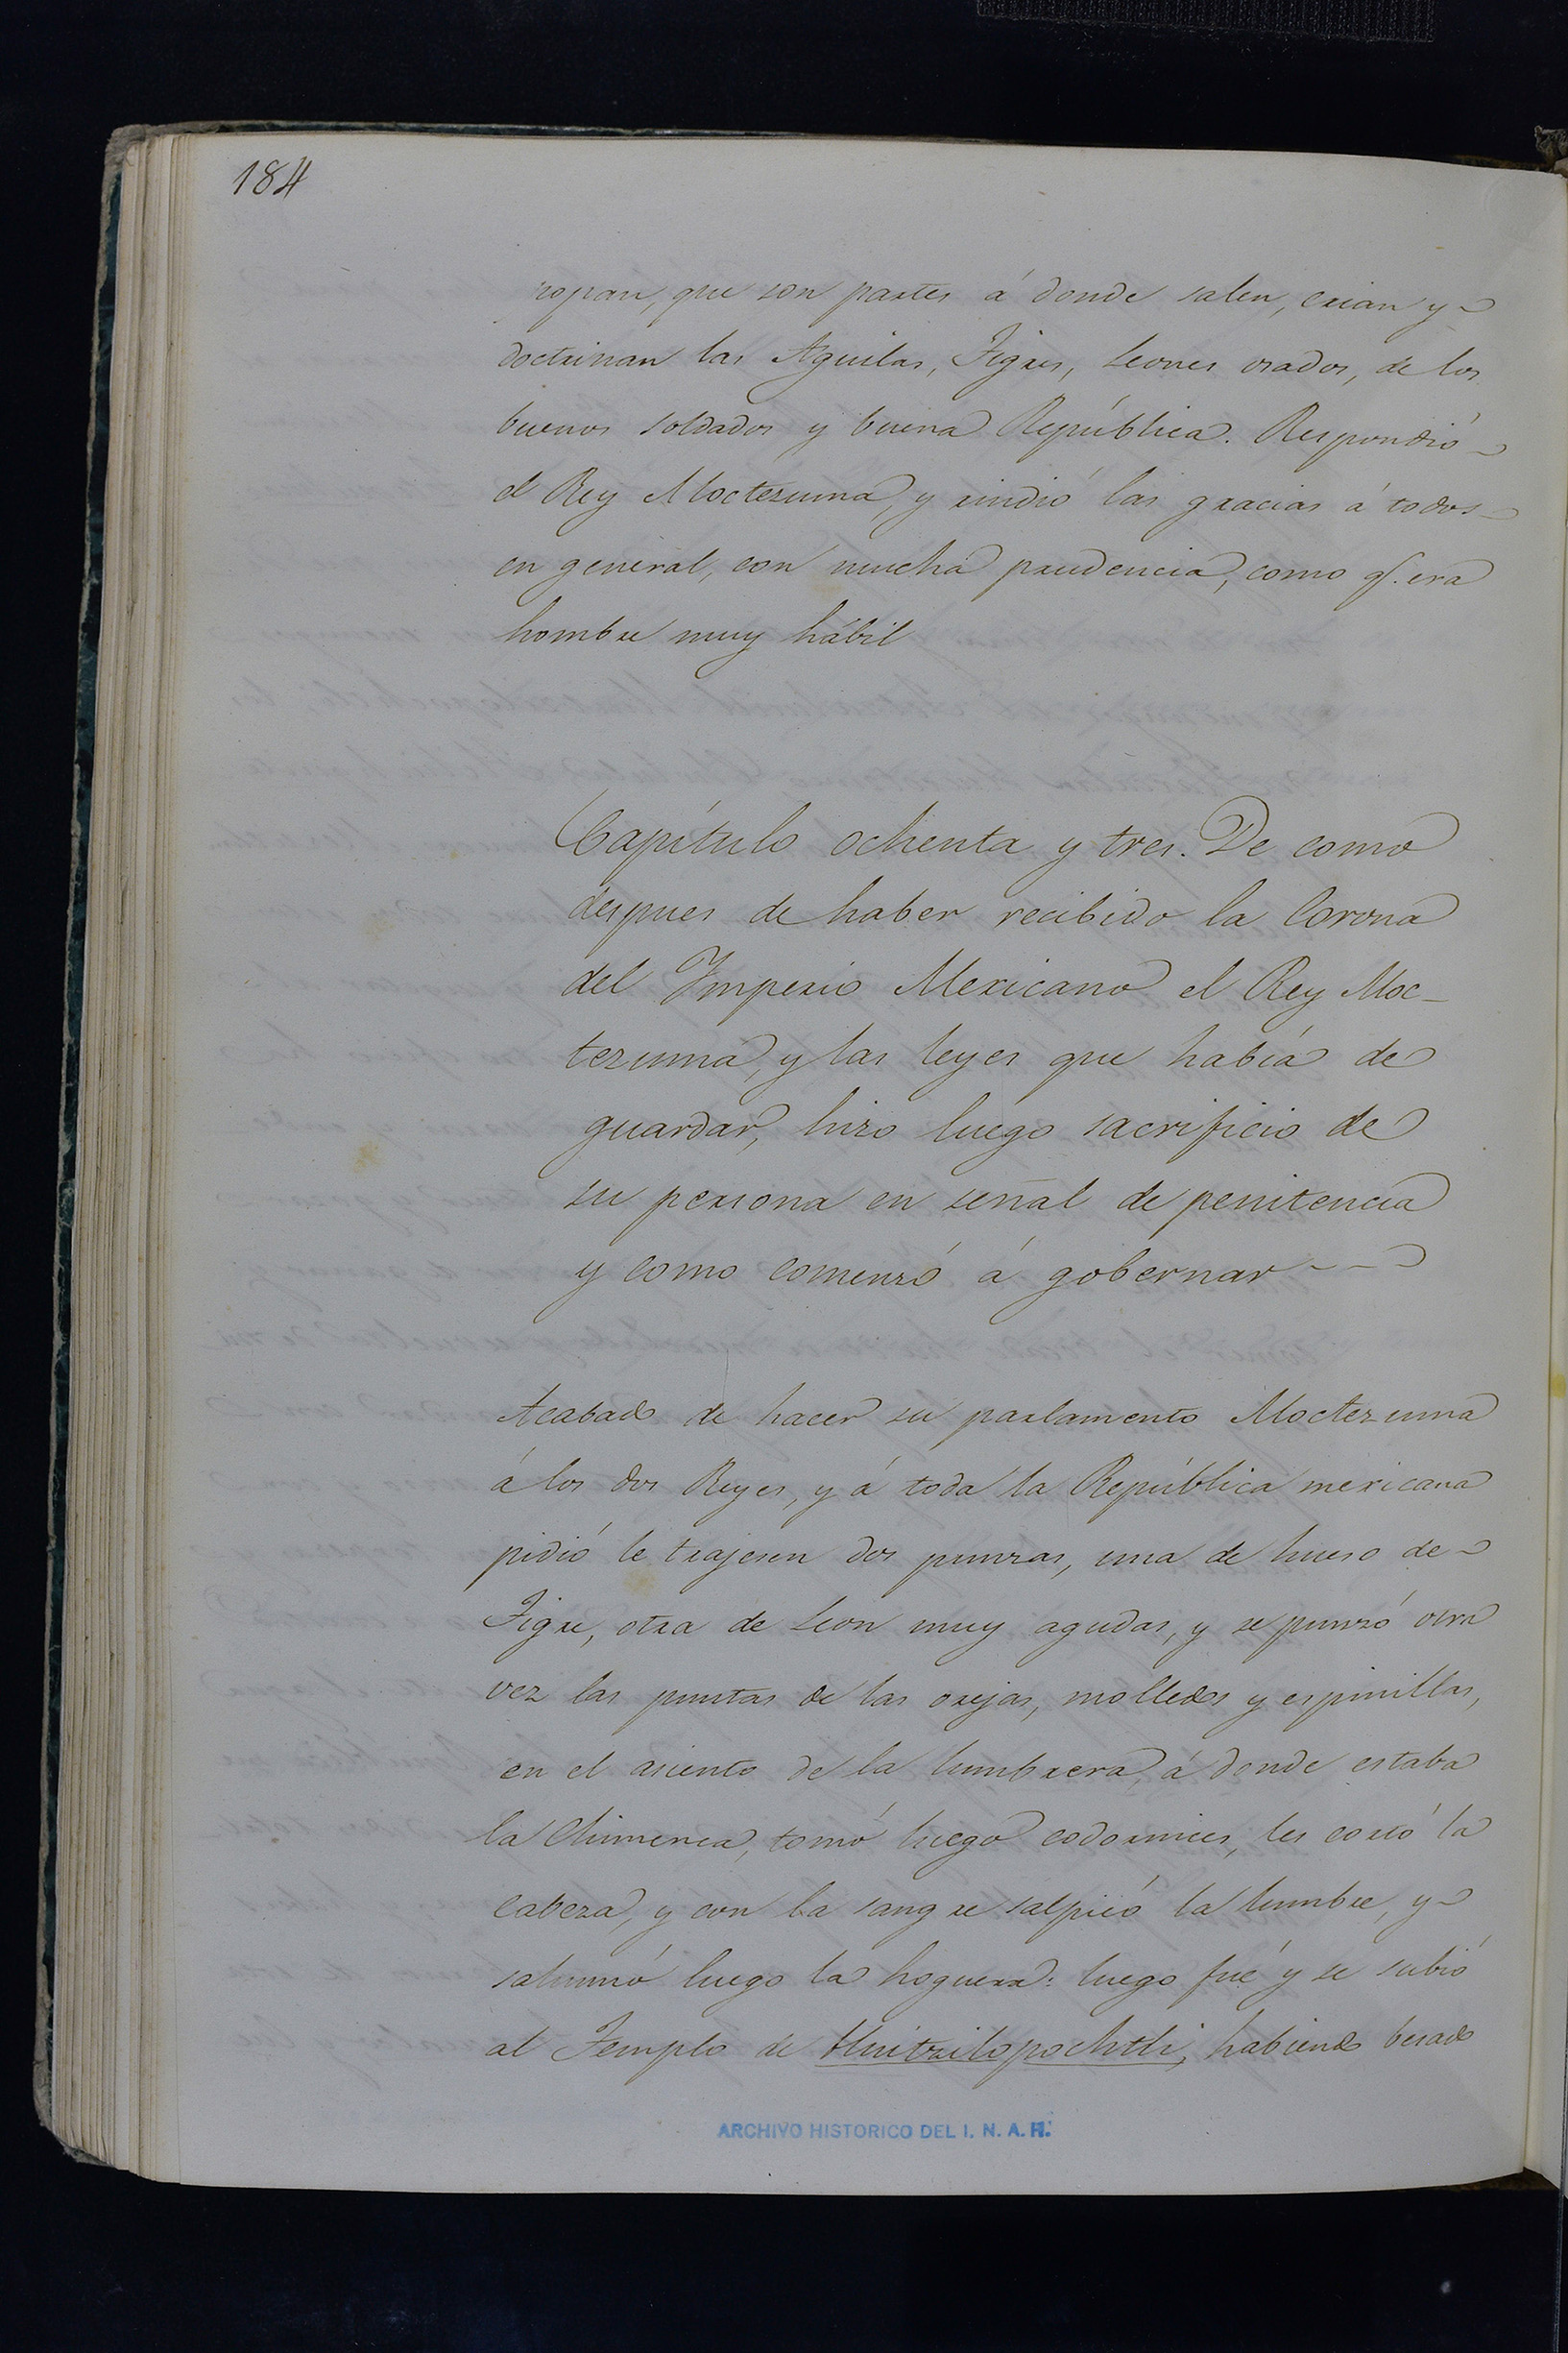 184
ropan, que son partes á donde salen, crian y
doctrinan las Aguilas, Tigres, Leones osados, de los
buenos soldados y buena República. Respondió
el Rey Moctezuma, y rindió las gracias á todos
en general, con mucha prudencia, como q. era
hombre muy hábil
Capítulo ochenta y tres. De como
despues de haber recibido la Corona
del Imperio Mexicano el Rey Moc-
tezuma, y las leyes que había de
guardar, hizo luego sacrificio de
su persona en señal de penitencia
y como comenzó á gobernar
Acabado de hacer su parlamento Moctezuma
á los dos Reyes, y á toda la República mexicana
pidió le trajesen dos punzas, una de hueso de
Tigre, otra de Leon muy agudas, y se punzó otra
vez las puntas de las orejas, molledos y espinillas,
en el asiento de la lumbrera, á donde estaba
la Chimenea, tomó luego codornices, les cortó la
cabeza, y con la sangre salpicó la lumbre, y
sahumó luego la hoguera: luego fué y se subió
al Templo de Huitzilopochtli, habiendo besado
ARCHIVO HISTORICO DEL I. N. A. H.